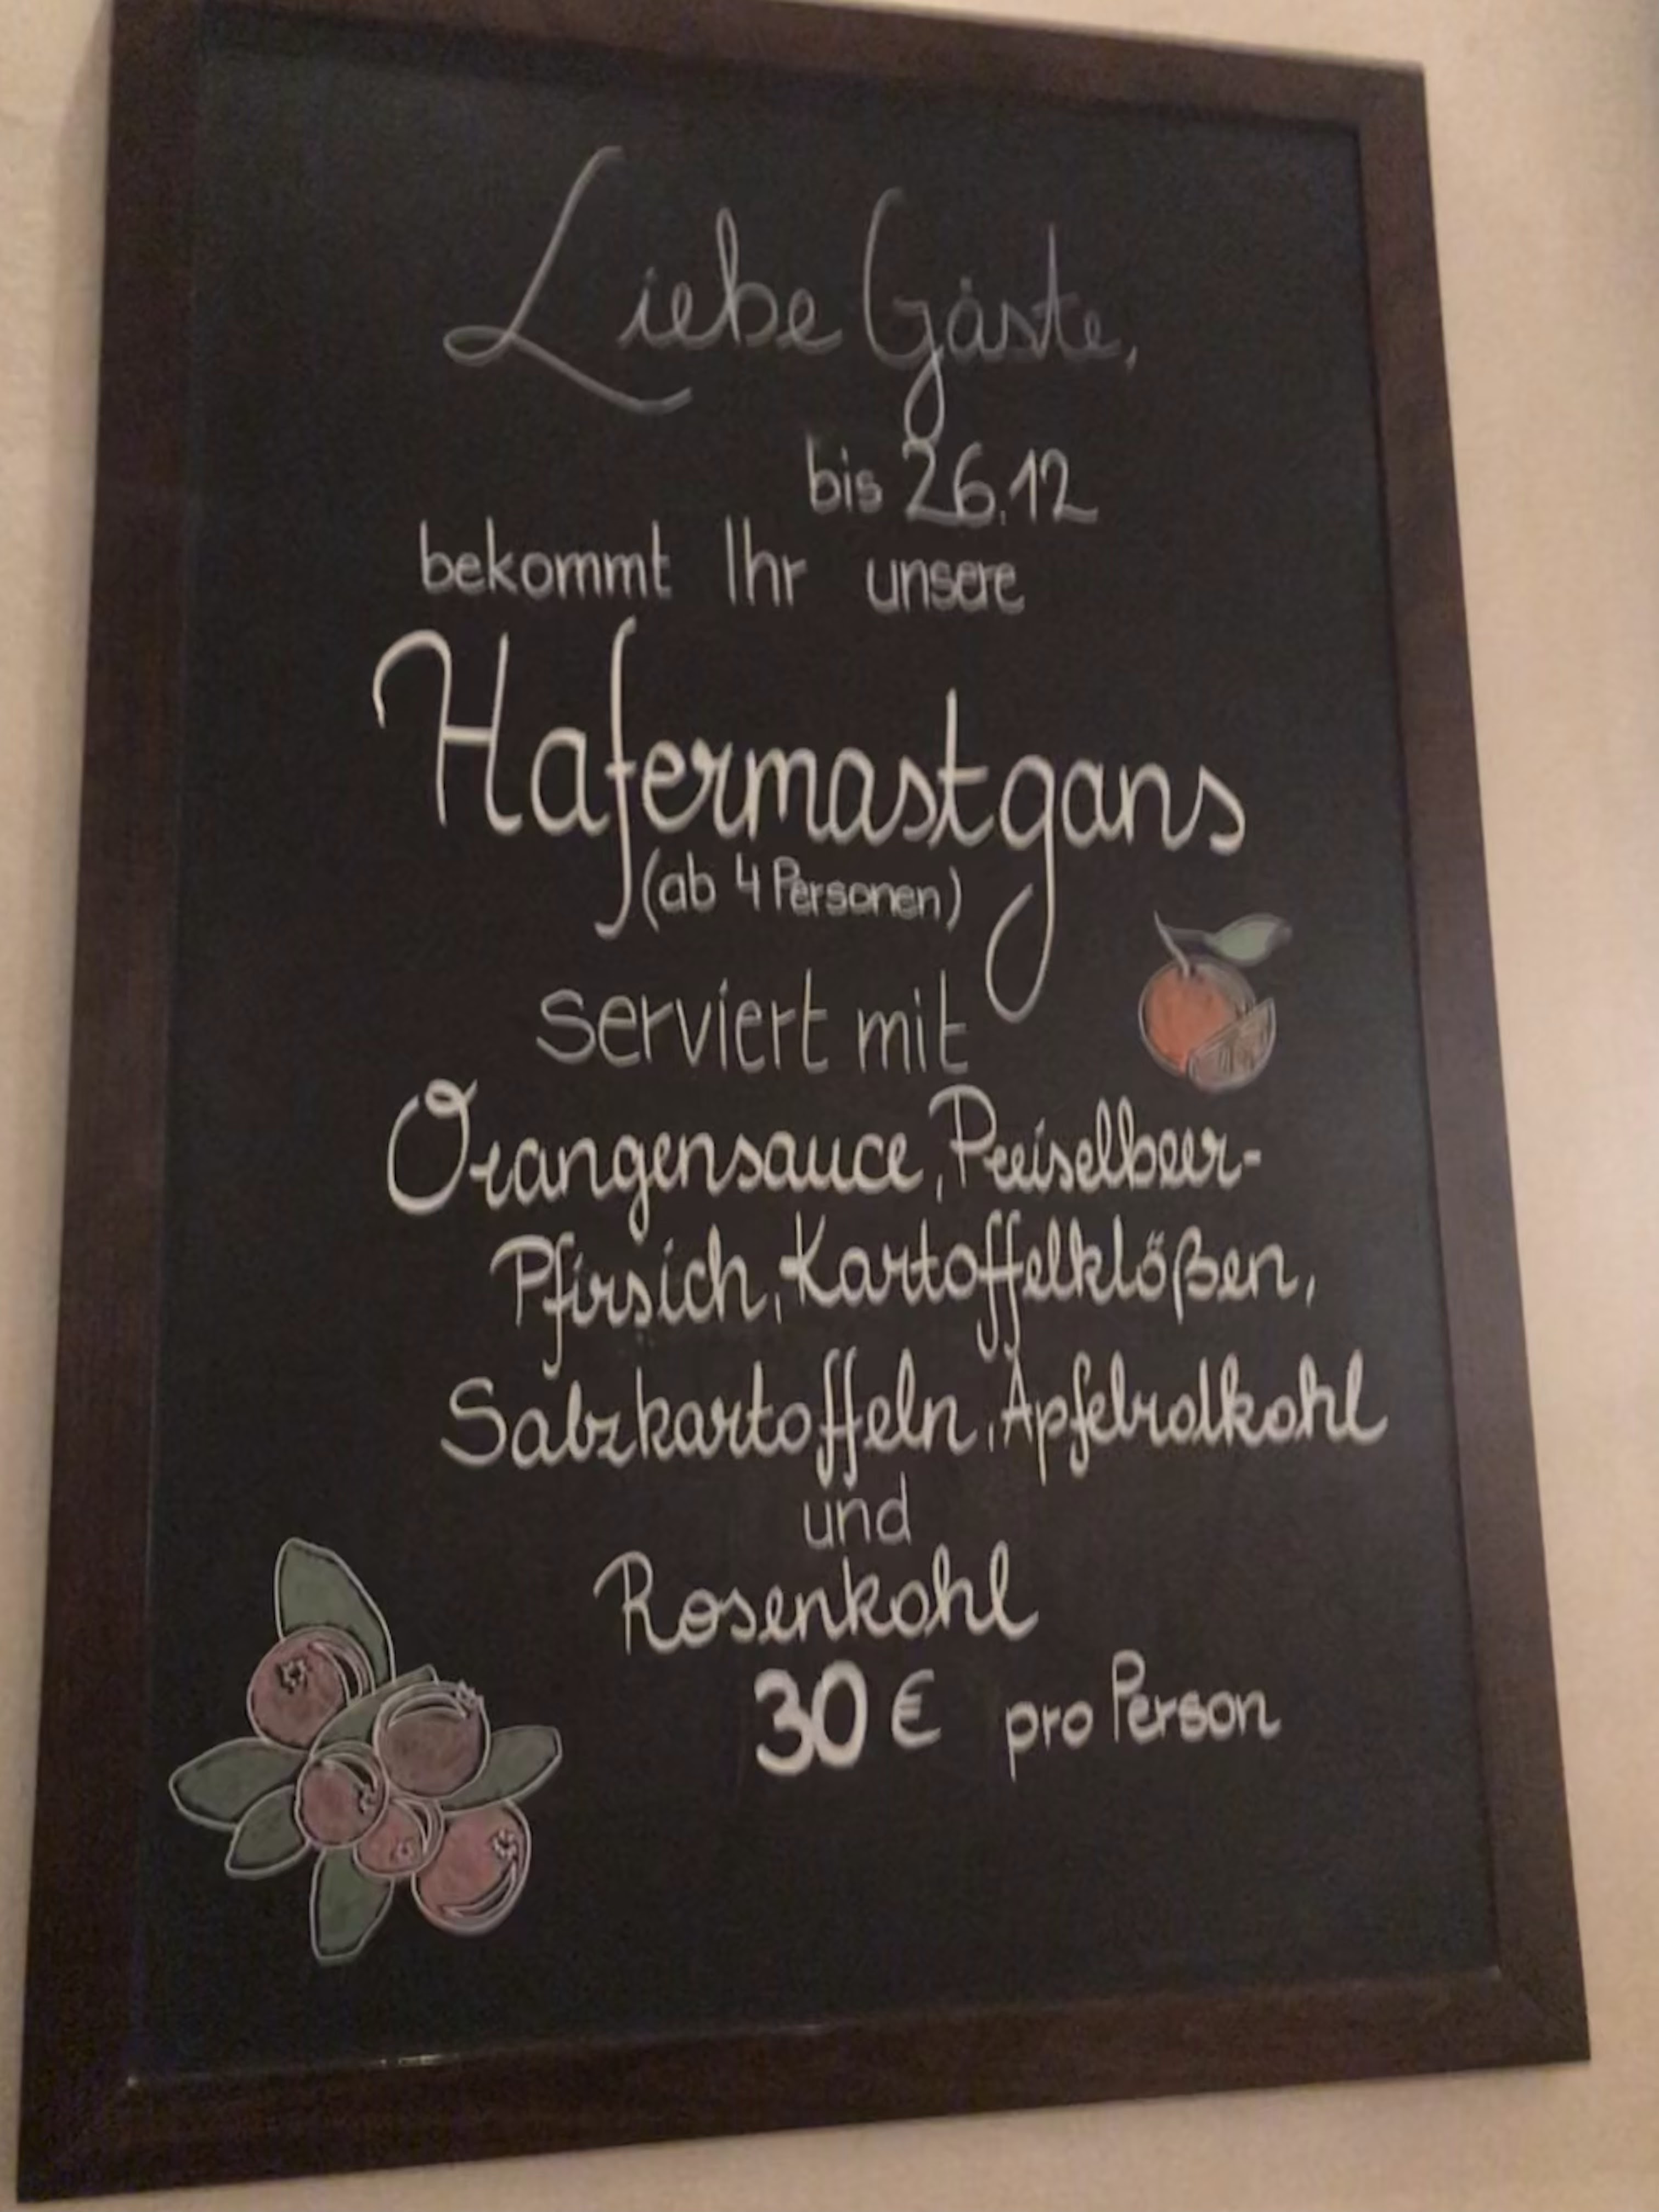 Liebe Gäste,
bis 26.12
bekommt Ihr unsere
Hafermastgans
(ab 4 Personen)
serviert mit
Orangensauce, Preiselbeer-
Pfirsich, Kartoffelklößen,
Salzkartoffeln, Apfelrotkohl
und
Rosenkohl
30 € pro Person